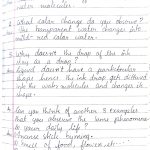 water molecules.
2. What color change do you observe?
→ the transparent water changes into
red color water.
3. Why doesn't the drop of the ink
stay as a drop?
→ liquid doesn't have a particular
shape hence the ink drop get diffused
into the water molecules and changes it
shape.
4. Can you think of another 5 examples
that you observe the same phenomenon
in your daily life?
→ Incense stick burning.
→ Smell of food, flower etc.